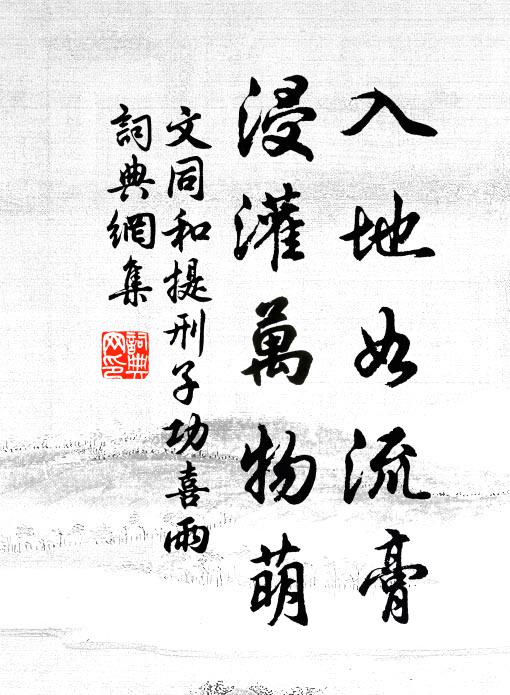 入地如流膏
浸灌萬物萌
文同和提刑子功喜雨
詞典網集
詞典
网印